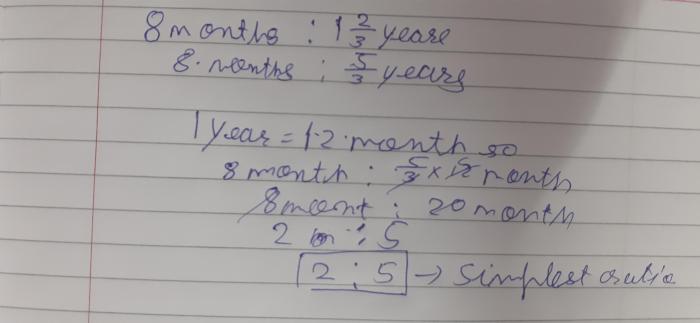 8 months : 1 2/3 years
8 months : 5/3 years
1 year = 12 month so
8 month : 5/3 × 12 month
8 mont : 20 month
2 : 5
2 : 5 → Simplest ratio